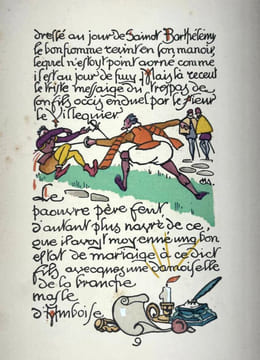 dressé au jour de Sainct Barthélemy
le bon homme revint en son manoir,
lequel n'estoyt point aorné comme
il est au jour de huy. Mais là receut
le triste messaige du trespas de
son fils occis en duel par le sieur
de Villequier
Le
paouvre père feut
d'autant plus navré de ce,
que il avoyt moyenné ung bon
estat de mariaige à ce dict
fils avecques une damoiselle
de la branche
masle
d'Amboise
9